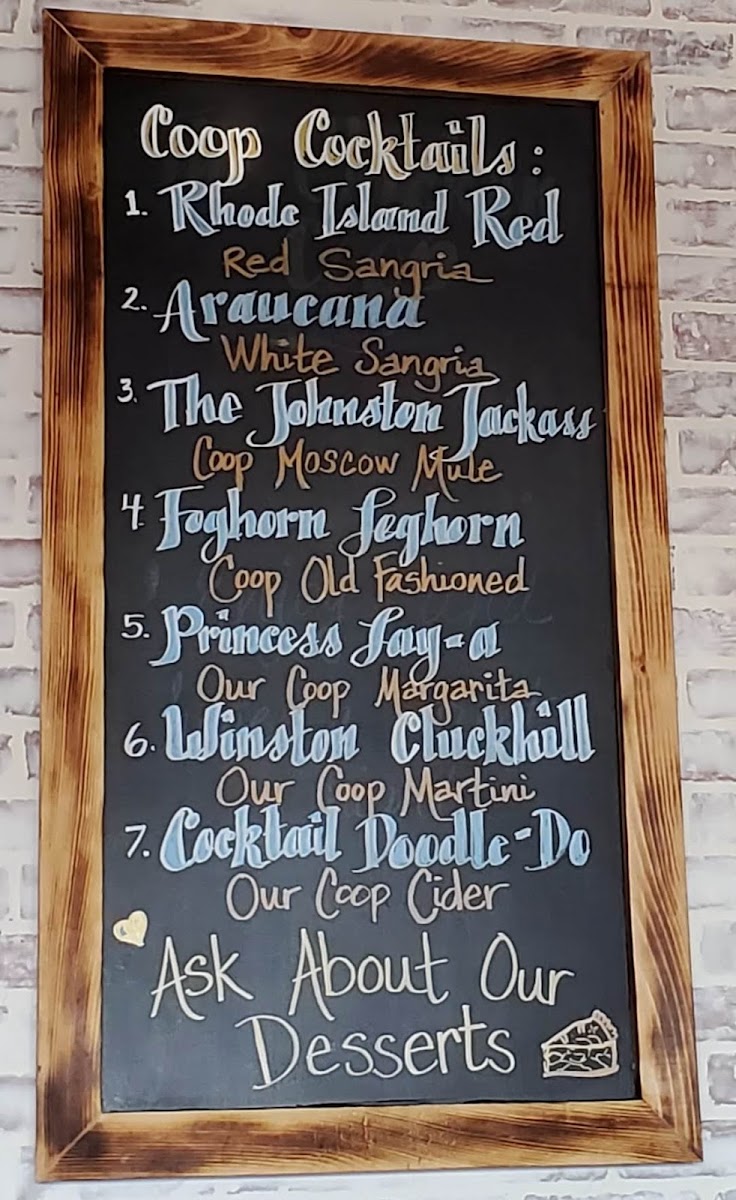 Coop Cocktails:
1. Rhode Island Red
Red Sangria
2. Araucana
White Sangria
3. The Johnston Jackass
Coop Moscow Mule
4. Foghorn Leghorn
Coop Old Fashioned
5. Princess Lay-a
Our Coop Margarita
6. Winston Cluckhill
Our Coop Martini
7. Cocktail Doodle-Do
Our Coop Cider
Ask About Our
Desserts